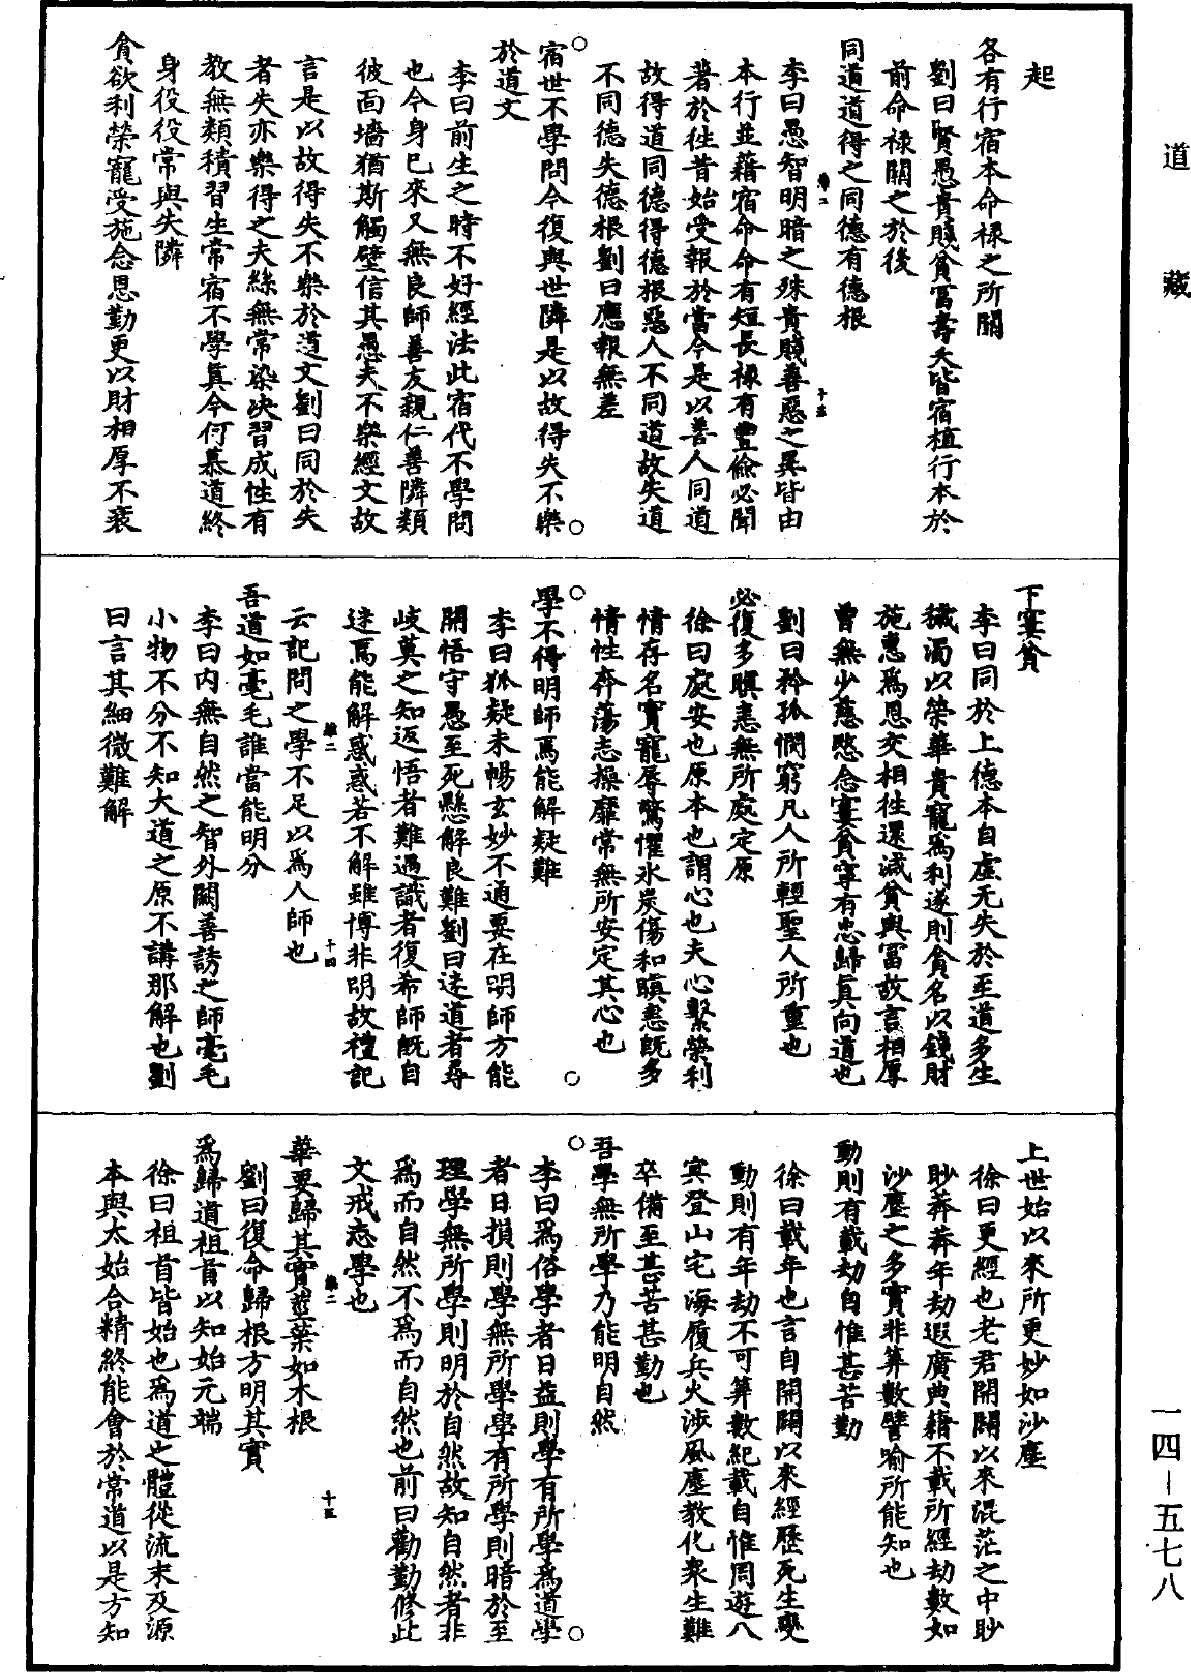 道藏
起
各有行宿本命祿之所關
劉曰賢愚貴賤貧富壽夭皆宿植行本於
前命祿關之於後
同道道得之同德有德根
李曰愚智明暗之殊貴賤善惡之異皆由
本行並藉宿命命有短長祿有豐儉必關
著於往昔始受報於當今是以善人同道
故得道同德得德根惡人不同道故失道
不同德失德根劉曰應報無差
宿世不學問今復與世隣是以故得失不樂
於道文
李曰前生之時不好經法此宿代不學問
也今身已來又無良師善友親仁善隣類
彼面墻猶斯觸壁信其愚夫不樂經文故
言是以故得失不樂於道文劉曰同於失
者失亦樂得之夫絲無常染泱習成性有
教無類積習生常宿不學眞今何慕道終
身役役常與失隣
貪欲利榮寵受施念恩勤更以財相厚不衰
下窶貧
李曰同於上德本自虛无失於至道多生
穢濁以榮華貴寵爲利遂則貪名以錢財
施惠爲恩交相往還減貧與富故言相厚
曾無少慈愍念窶貧寧有忠歸眞向道也
劉曰矜孤憫窮凡人所輕聖人所重也
必復多瞋恚無所處定原
徐曰處安也原本也謂心也夫心繫榮利
情存名實寵辱驚懼氷炭傷和瞋恚既多
情性奔蕩志操靡常無所安定其心也
學不得明師焉能解疑難
李曰狐疑未暢玄妙不通要在明師方能
開悟守愚至死懸解良難劉曰迷道者尋
歧莫之知返悟者難遇識者復希師既自
迷焉能解惑惑若不解雖博非明故禮記
云記問之學不足以爲人師也
吾道如毫毛誰當能明分
李曰内無自然之智外闕善誘之師毫毛
小物不分不知大道之原不講那解也劉
曰言其細微難解
上世始以來所更妙如沙塵
徐曰更經也老君開闢以來混茫之中眇
眇莽莽年劫遐廣典籍不載所經劫數如
沙塵之多實非筭數譬喻所能知也
動則有載劫自惟甚苦勤
徐曰載年也言自開闢以來經歷死生變
動則有年劫不可筭數紀載自惟周遊八
冥登山宅海履兵火涉風塵教化衆生難
卒備至甚苦甚勤也
吾學無所學乃能明自然
李曰爲俗學者日益則學有所學爲道學
者日損則學無所學學有所學則暗於至
理學無所學則明於自然故知自然者非
爲而自然不爲而自然也前曰勸勤修此
文戒忘學也
華要歸其實莖葉如木根
劉曰復命歸根方明其實
爲歸道祖首以知始元端
徐曰祖首皆始也爲道之體從流末及源
本與太始合精終能會於常道以是方知
一四－五七八